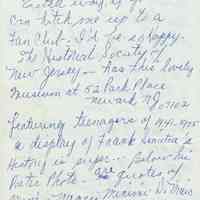 can hitch one up to a
Fan Club. I'd be so happy.
The Historical Society of
New Jersey - has this lovely
Museum at 52 Park Place
Newark NJ
07102
featuring teenagers of 1941-1975
a display of Frank Sinatra's
History is super... below his
Photo. quotes of